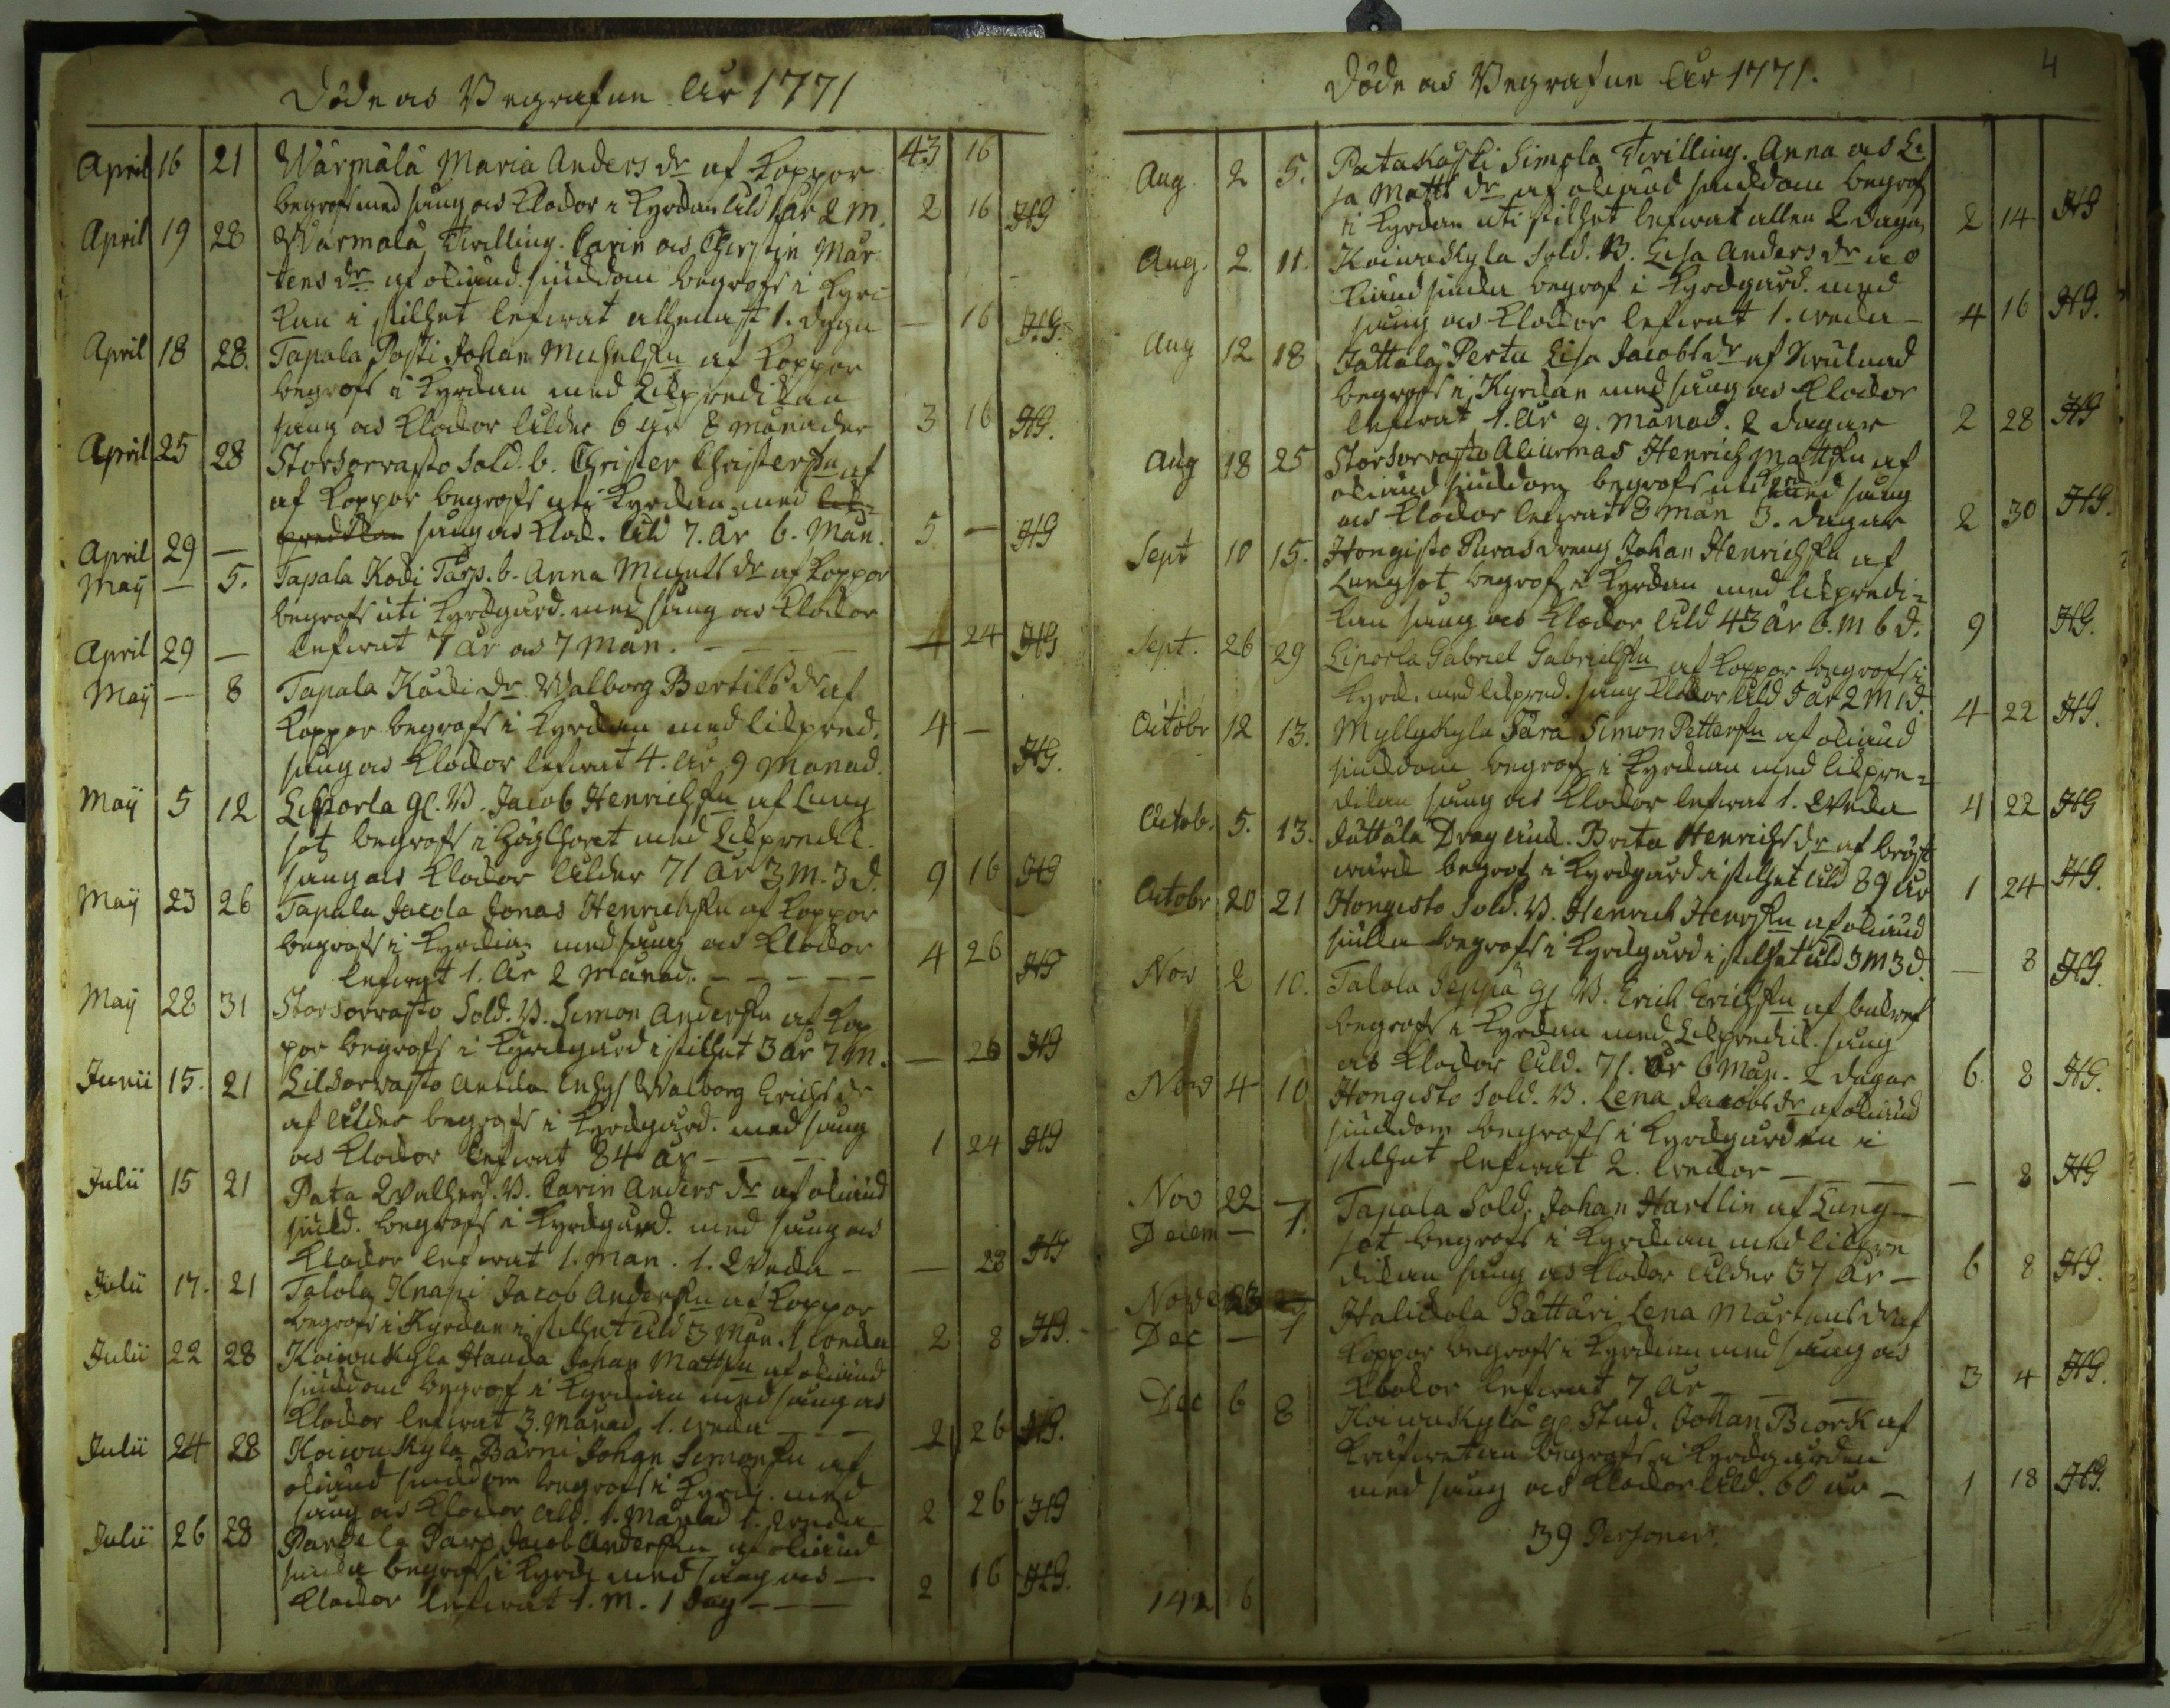 Döde och Begrafne Åhr 1771
43 16
April 16 21 Wärmälä Maria Anders dr af Koppor
begrofs med sång och Klockor i Kyrckan Åld 1 år 2 m. 2 16 HG
April 19 28 Wärmälä Twilling. Carin och Chirstin Mår
tens dr af okiänd siukdom begrofs i Kyrc
kan i stillhet lefwat allenast 1. dygn — 16 HG.
April 18 28. Tapala Påsti Johan Michelsson af Koppor
begrofs i Kyrckan med Likpredikan
sång och Klockor Ålder 6 åhr 8 månader 3 16 HG.
April 25 28 Storsorrasto Sold. b. Christer Christersson af
af Koppor begrofs uti Kyrckan med lik-
predikan sång och Klock. Åld 7. År 6. Mån. 5 — HG
April 29 —
May — 5. Tapala Kodi Tårp. b. Anna Michels dr af Koppor
begrofs uti Kyrckgård. med sång och Klockor
April 29 — lefwat 7 år och 7 mån. — 4 24 HG
May — 8 Tapala Kodi Dr. Walborg Bertils dr af
Koppor begrofs i Kyrckan med likpred. 4 —
sång och Klockor lefwat 4. År 9 Månad. HG.
May 5 12 Liporla gl. B. Jacob Henrichsson af Lung
sot begrofs i högchoret med Likpredik.
sång och Klockor Ålder 71 År 3 m. 3 d. 9 16 HG
May 23 26 Tapala Jacola Jonas Henrichsson af Koppor
begrofs i Kyrckan med sång och Klockor
lefwat 1. År 2 Månad. — 4 26 HG
May 28 31 Storsorrasto Sold. B. Simon Andersson af Kop
por begrofs i Kyrckgård i stillhet 3 År 7 m. — 26 HG
Junii 15. 21 Lilsorrasto Inhys Walborg Erichs dr
af Ålder begrofs i Kyrckgård. med sång
och Klockor lefwat 84 år — 1 24 HG
Julii 15 21 Pata B. Carin Anders dr af okiänd
siukd. begrofs i Kyrckgård. med sång och
Klockor lefwat 1. mån. 1. Weka — — 28 HG
Julii 17. 21 Talola Knapi Jacob Andersson af Koppor
begrofs i Kyrckan i stillhet Åld 3 Mån. 1 wecka 2 8 HG.
Julii 22 28 Koiwukyla Hanna Johan Mattsson af okiänd
siukdom begrof i Kyrckan med sång och
Klockor lefwat 3. Månad 1. weka — 2 26 HG.
Julii 24 28 Koiwukyla Barni Johan Simonsson af
okiänd siukdom begrofs i Kyrckg. med
sång och Klockor Åld. 1. Månad 1. weka 2 26 HG
Julii 26 28 Parpela Parp Jacob Andersson af okiänd
siucka begrofs i Kyrck med sång och —
Klockor lefwat 1. m. 1 dag — 2 16 HG.
4
Döde och Begrafne Åhr 1771.
Aug. 2 5. Patakoski Simola Twilling. Anna och Li
sa Matts dr af okiänd siukdom begrof
i Kyrckan uti stillhet lefwat allen 2 dagar 2 14 HG
Aug. 2 11. Koiwukyla Sold. B. Lisa Anders dr a o
kiänd siucka begrof i Kyrckgård. med
sång och Klockor lefwat 1. wecka — 4 16 HG.
Aug 12 18 Jättälä Perta Lisa Jacobs dr af
begrofs i Kyrckan med sång och Klockor
lefwat 1. År 9. Månad. 2 dagar 2 28 HG
Aug 18 25 Storsorrasto Henrich Mattsson af
okiänd siukdom begrofs uti med sång
och Klockor lefwat 8 mån 3. dagar 2 30 HG.
Sept 10 15. Hongisto Puras dreng Johan Henrichsson af
Lungsot begrof i Kyrckan med likpredi-
kan sång och Klockor Åld 43 år 6. m 6 d. 9 HG.
Sept. 26 29 Liporla Gabriel Gabrielsson af Koppor begrofs i
Kyrck. med likpred. sång Klockor Åld 5 år 2 M 1 d. 4 22 HG.
Octobr 12 13. Myllykyla Sara Simon Pettersson af okiänd
siukdom begrof i Kyrckan med likpre-
dikan sång och Klockor lefwat 1. Weka 4 22 HG
Octob. 5. 13. Jättälä Drag änk. Brita Henrichs dr af bröst
wärck begrof i Kyrckgård i stillhet Åld 89 År 1 24 HG.
Octobr 20 21 Hongisto Sold. B. Henrich Henrsson af okiänd
siucka begrofs i Kyrckgård i stillhet Åld 3 M 3 d. — 8 HG.
Nov 2 10. Talola Seppä gl B. Erich Erichsson af
begrofs i Kyrckan med Likpredik. sång
och Klockor Åld. 71. År 6 Mån. 2 dagar 6 8 HG.
Nov 4 10 Hongisto Sold. B. Lena Jacobs dr af okiänd
siukdom begrofs i Kyrckgården i
stillhet lefwat 2. weckor — — 8 HG
Nov 22 —
Decem — 1. Tapala Sold. Johan Hartlin af Lung-
sot begrofs i Kyrckan med likpre
dikan sång och Klockor Ålder 37 År — 6 8 HG.
Nove 23
Dec — 1 Halikola Sattari Lena Mårtens dr af
Koppor begrofs i Kyrckan med sång och
Klockor lefwat 7 År — 3 4 HG.
Dec 6 8 Koiwukylä gl Stud. Johan Biorck af
Kräfwetan begrofs i Kyrckgården
med sång och Klockor Åld. 60 år — 1 18 HG.
39 Personer.
142 6